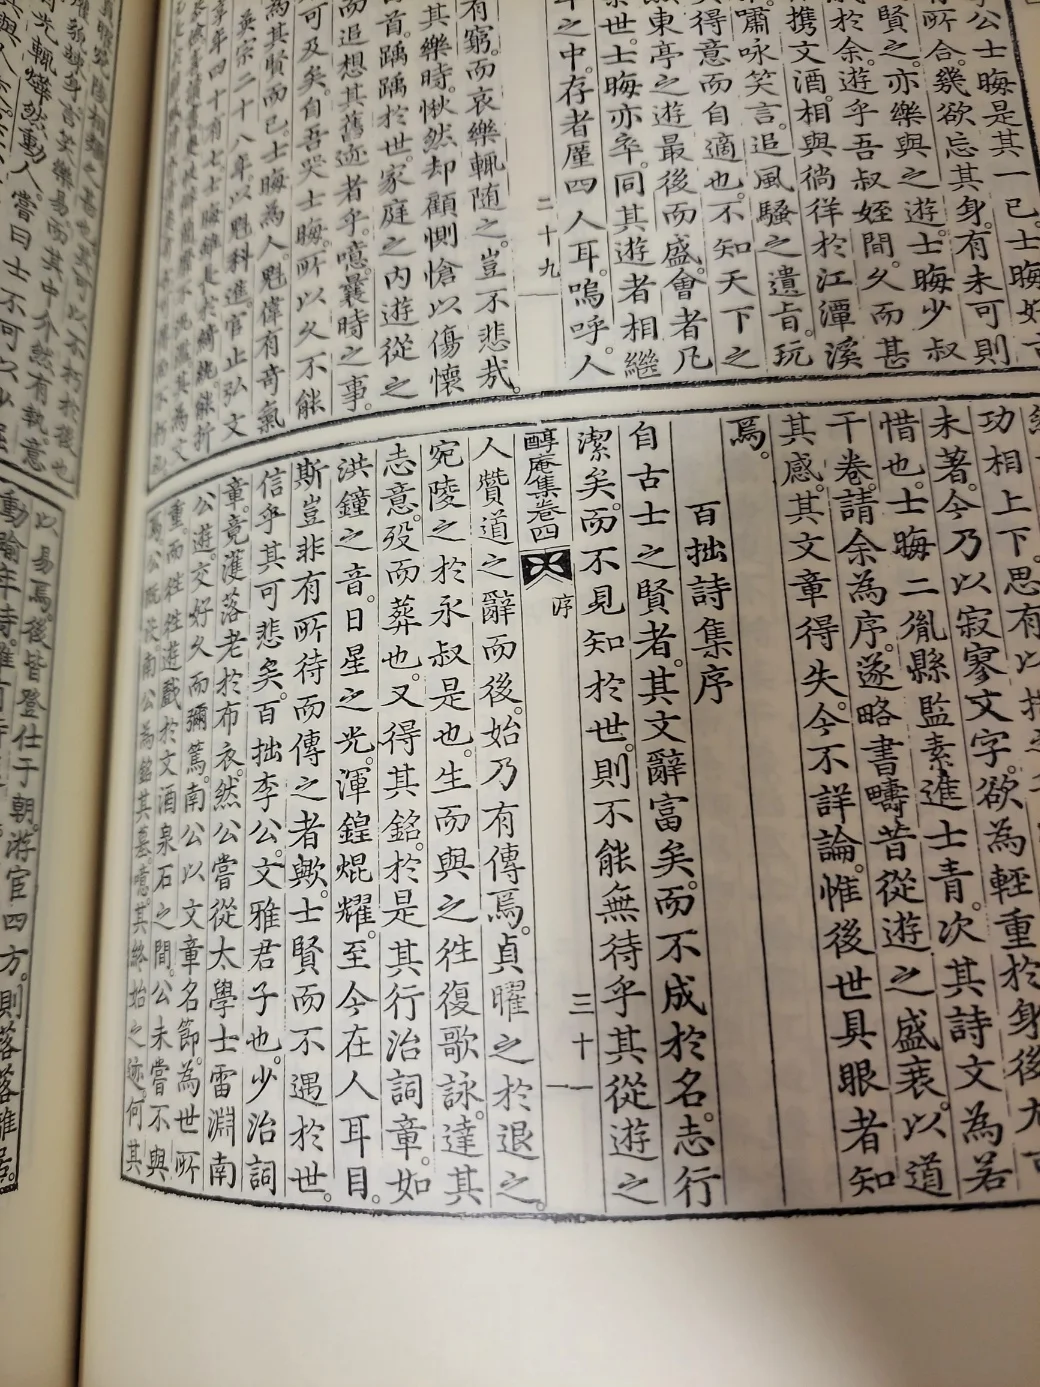 李公士晦是其一已士晦好古
有所合幾欲忘其身有未可則
賢之亦樂與之遊士晦少叔
於余遊乎吾叔姪間久而甚
攜文酒相與徜徉於江潭溪
嘯咏笑言追風騷之遺旨玩
得意而自適也不知天下之
東亭之遊最後而盛會者凡
世士晦亦卒同其遊者相繼
之中存者厪四人耳嗚呼人
二十九
有窮而哀樂輒随之豈不悲哉
其樂時愀然却顧惻愴以傷懷
首踽踽於世家庭之内遊從之
而追想其舊迹者乎噫曩時之事
可及矣自吾哭士晦所以久不能
其賢而已士晦為人魁偉有奇氣
英宗二十八年以魁科進官止弘文
年四十有七
功相上下思有以
未著今乃以寂寥文字欲為輕重於身後尤
惜也士晦二胤縣監素進士青次其詩文為若
干卷請余為序遂略書疇昔從遊之盛衰以道
其感其文章得失今不詳論惟後世具眼者知
焉
百拙詩集序
自古士之賢者其文辭富矣而不成於名志行
潔矣而不見知於世則不能無待乎其從遊之
醇庵集卷四 序 三十一
人贊道之辭而後始乃有傳焉貞曜之於退之
宛陵之於永叔是也生而與之徃復歌詠達其
志意歿而葬也又得其銘於是其行治詞章如
洪鐘之音日星之光渾鍠焜耀至今在人耳目
斯豈非有所待而傳之者歟士賢而不遇於世
信乎其可悲矣百拙李公文雅君子也少治詞
章竟濩落老於布衣然公嘗從太學士雷淵南
公遊交好久而彌篤南公以文章名節為世所
重而徃徃遊戲於文酒泉石之間公未嘗不與
焉公既沒南公為銘其墓噫其終始之迹何其
光輒燁然動人嘗曰士不可以
以易焉後皆登仕于朝游宦四方則落落離居